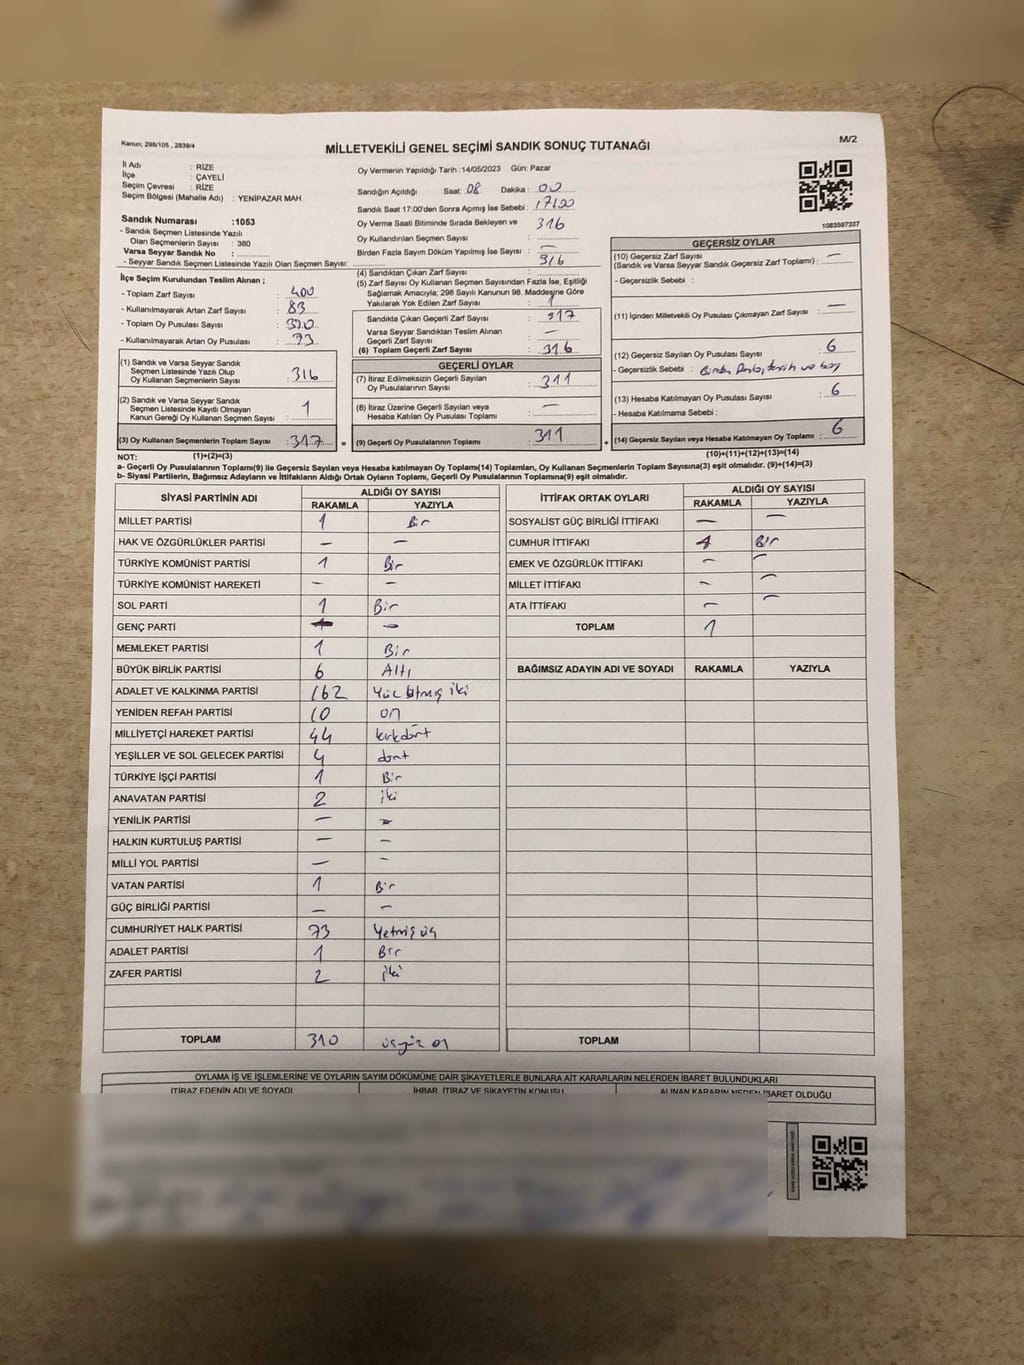 Kanun; 298/105 , 2839/4
M/2
MİLLETVEKİLİ GENEL SEÇİMİ SANDIK SONUÇ TUTANAĞI
İl Adı : RİZE
İlçe : ÇAYELİ
Seçim Çevresi : RİZE
Seçim Bölgesi (Mahalle Adı) : YENİPAZAR MAH.
Sandık Numarası :1053
- Sandık Seçmen Listesinde Yazılı
Olan Seçmenlerin Sayısı : 380
Varsa Seyyar Sandık No :
- Seyyar Sandık Seçmen Listesinde Yazılı Olan Seçmen Sayısı:
Oy Vermenin Yapıldığı Tarih :14/05/2023 Gün: Pazar
Sandığın Açıldığı Saat: 08 Dakika : 00
Sandık Saat 17:00'den Sonra Açımış İse Sebebi : 17:00
Oy Verme Saati Bitiminde Sırada Bekleyen ve 316
Oy Kullandırılan Seçmen Sayısı :
Birden Fazla Sayım Döküm Yapılmış İse Sayısı : —
316
1083597337
İlçe Seçim Kurulundan Teslim Alınan ;
- Toplam Zarf Sayısı : 400
- Kullanılmayarak Artan Zarf Sayısı : 83
- Toplam Oy Pusulası Sayısı :
- Kullanılmayarak Artan Oy Pusulası : 73
(1) Sandık ve Varsa Seyyar Sandık
Seçmen Listesinde Yazılı Olup
Oy Kullanan Seçmenlerin Sayısı : 316
(2) Sandık ve Varsa Seyyar Sandık
Seçmen Listesinde Kayıtlı Olmayan
Kanun Gereği Oy Kullanan Seçmen Sayısı : 1
(3) Oy Kullanan Seçmenlerin Toplam Sayısı : 317 =
(4) Sandıktan Çıkan Zarf Sayısı :
(5) Zarf Sayısı Oy Kullanan Seçmen Sayısından Fazla İse, Eşitliği
Sağlamak Amacıyla; 298 Sayılı Kanunun 98. Maddesine Göre
Yakılarak Yok Edilen Zarf Sayısı : 1
Sandıkta Çıkan Geçerli Zarf Sayısı : 317
Varsa Seyyar Sandıktan Teslim Alınan
Geçerli Zarf Sayısı : —
(6) Toplam Geçerli Zarf Sayısı : 316
GEÇERLİ OYLAR
(7) İtiraz Edilmeksizin Geçerli Sayılan
Oy Pusulalarının Sayısı : 311
(8) İtiraz Üzerine Geçerli Sayılan veya
Hesaba Katılan Oy Pusulası Toplamı : —
(9) Geçerli Oy Pusulalarının Toplamı : 311 +
GEÇERSİZ OYLAR
(10) Geçersiz Zarf Sayısı
(Sandık ve Varsa Seyyar Sandık Geçersiz Zarf Toplamı) : —
- Geçersizlik Sebebi :
(11) İçinden Milletvekili Oy Pusulası Çıkmayan Zarf Sayısı : —
(12) Geçersiz Sayılan Oy Pusulası Sayısı : 6
- Geçersizlik Sebebi : Birden ve boş
(13) Hesaba Katılmayan Oy Pusulası Sayısı : 6
- Hesaba Katılmama Sebebi :
(14) Geçersiz Sayılan veya Hesaba Katılmayan Oy Pusulası Toplamı : 6
NOT: (1)+(2)=(3) (10)+(11)+(12)+(13)=(14)
a- Geçerli Oy Pusulalarının Toplamı(9) ile Geçersiz Sayılan veya Hesaba katılmayan Oy Toplamı(14) Toplamları, Oy Kullanan Seçmenlerin Toplam Sayısına(3) eşit olmalıdır. (9)+(14)=(3)
b- Siyasi Partilerin, Bağımsız Adayların ve İttifakların Aldığı Ortak Oyların Toplamı, Geçerli Oy Pusulalarının Toplamına(9) eşit olmalıdır.
SİYASİ PARTİNİN ADI ALDIĞI OY SAYISI
RAKAMLA YAZIYLA
MİLLET PARTİSİ 1 Bir
HAK VE ÖZGÜRLÜKLER PARTİSİ — —
TÜRKİYE KOMÜNİST PARTİSİ 1 Bir
TÜRKİYE KOMÜNİST HAREKETİ — —
SOL PARTİ 1 Bir
GENÇ PARTİ — —
MEMLEKET PARTİSİ 1 Bir
BÜYÜK BİRLİK PARTİSİ 6 Altı
ADALET VE KALKINMA PARTİSİ 162 Yüz altmış iki
YENİDEN REFAH PARTİSİ 10 on
MİLLİYETÇİ HAREKET PARTİSİ 44 kırkdört
YEŞİLLER VE SOL GELECEK PARTİSİ 4 dört
TÜRKİYE İŞÇİ PARTİSİ 1 Bir
ANAVATAN PARTİSİ 2 iki
YENİLİK PARTİSİ — —
HALKIN KURTULUŞ PARTİSİ — —
MİLLİ YOL PARTİSİ — —
VATAN PARTİSİ 1 Bir
GÜÇ BİRLİĞİ PARTİSİ — —
CUMHURİYET HALK PARTİSİ 73 Yetmiş üç
ADALET PARTİSİ 1 Bir
ZAFER PARTİSİ 2 iki
TOPLAM 310 üçyüz on
İTTİFAK ORTAK OYLARI ALDIĞI OY SAYISI
RAKAMLA YAZIYLA
SOSYALİST GÜÇ BİRLİĞİ İTTİFAKI — —
CUMHUR İTTİFAKI 1 Bir
EMEK VE ÖZGÜRLÜK İTTİFAKI — —
MİLLET İTTİFAKI — —
ATA İTTİFAKI — —
TOPLAM 1
BAĞIMSIZ ADAYIN ADI VE SOYADI RAKAMLA YAZIYLA
TOPLAM
OYLAMA İŞ VE İŞLEMLERİNE VE OYLARIN SAYIM DÖKÜMÜNE DAİR ŞİKAYETLERLE BUNLARA AİT KARARLARIN NELERDEN İBARET BULUNDUKLARI
İTİRAZ EDENİN ADI VE SOYADI İHBAR, İTİRAZ VE ŞİKAYETİN KONUSU ALINAN KARARIN NEDEN İBARET OLDUĞU